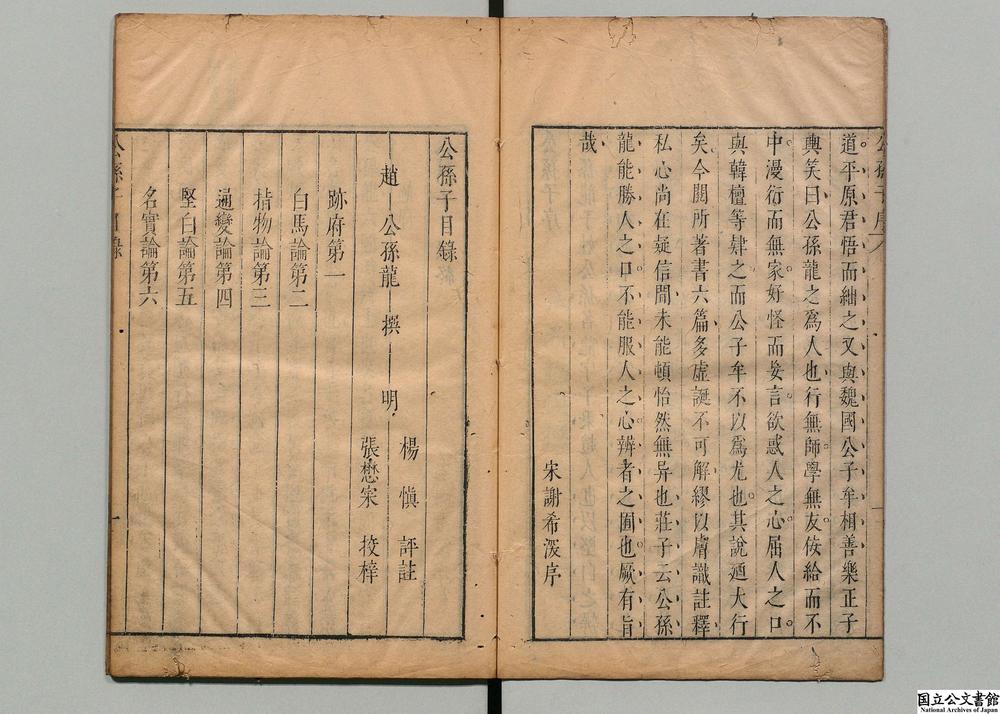 道平原君悟而絀之又與魏國公子牟相善樂正子
輿笑曰公孫龍之為人也行無師學無友佞給而不
中漫衍而無家好怪而妄言欲惑人之心屈人之口
與韓檀等肄之而公子牟不以為尤也其說迺大行
矣今閱所著書六篇多虛誕不可解繆以膚識註釋
私心尚在疑信間未能頓怡然無异也莊子云公孫
龍能勝人之口不能服人之心辨者之囿也厥有旨
哉
宋謝希深序
公孫子目錄
趙 公孫龍 撰 明 楊慎 評註
張懋寀 挍梓
跡府第一
白馬論第二
指物論第三
通變論第四
堅白論第五
名實論第六
公孫子目錄
一
国立公文書館
National Archives of Japan